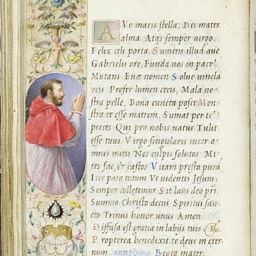 AVe maris stella, Dei mater
alma Atqs semper uirgo.
Felix celi porta. Sumens illud aue
Gabrielis ore, Funda nos in pace,
Mutans Euæ nomen Solue uincla
reis Profer lumen cæcis, Mala no
stra pelle, Bona cuncta posce Mon
stra te esse matrem, Sumat per te
preces Qui pro nobis natus Tulit
esse tuus Virgo singularis inter o
mnes mitis Nos culpis solutos Mi
tes fac, & castos Vitam præsta purã
Iter para tutum Vt uidentes Iesum
Semper collętemur Sit laus deo pri,
Summo Christo decus Spiritui san
cto Trinus honor unus Amen
Diffusa est gratia in labijs tuis
Propterea benedixit te deus in eter
num. antiphona Beata mater